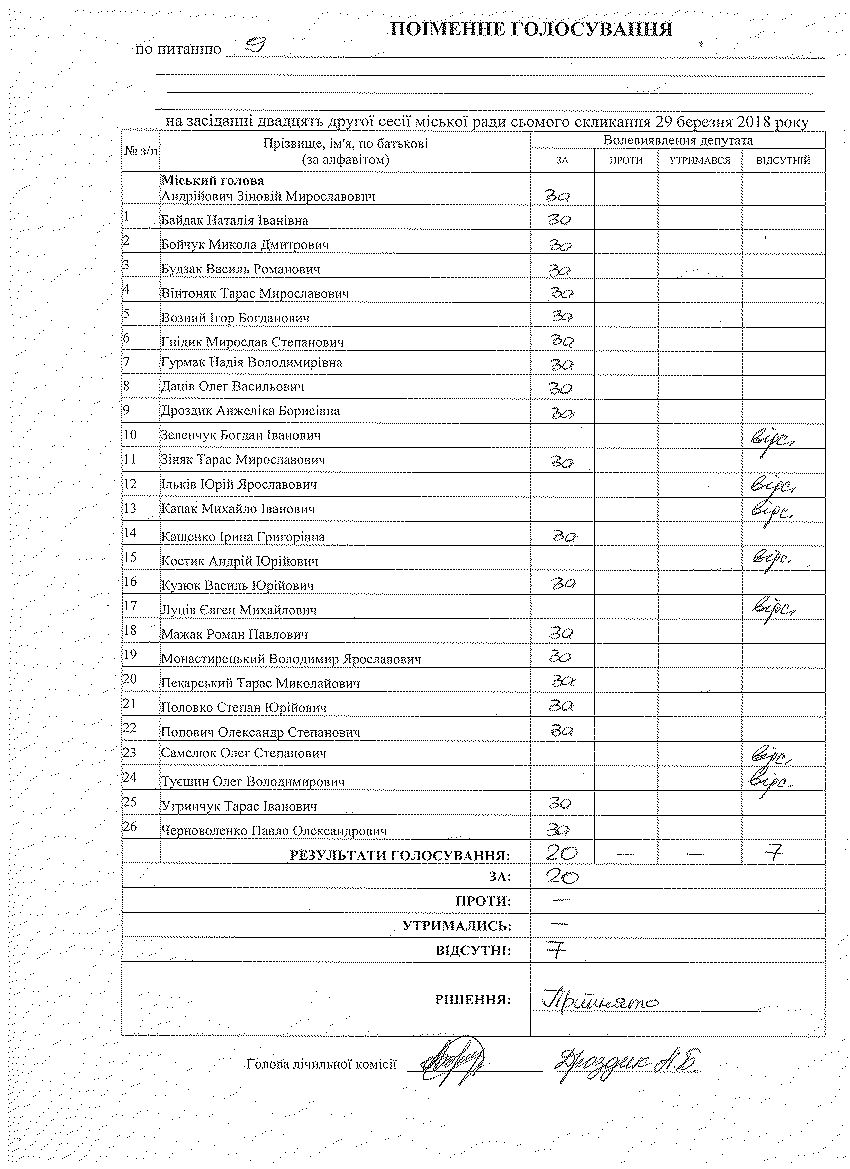 ПОІМЕННЕ ГОЛОСУВАННЯ
по питанню 9
на засіданні двадцять другої сесії міської ради сьомого скликання 29 березня 2018 року
№ з/п Прізвище, ім'я, по батькові (за алфавітом) Волевиявлення депутата
ЗА ПРОТИ УТРИМАВСЯ ВІДСУТНІЙ
Міський голова
Андрійович Зіновій Мирославович За
1 Байдак Наталія Іванівна За
2 Бойчук Микола Дмитрович За
3 Будзак Василь Романович За
4 Вінтоняк Тарас Мирославович За
5 Возний Ігор Богданович За
6 Гнідик Мирослав Степанович За
7 Гурмак Надія Володимирівна За
8 Даців Олег Васильович За
9 Дроздик Анжеліка Борисівна За
10 Зеленчук Богдан Іванович відс.
11 Зіняк Тарас Мирославович За
12 Ільків Юрій Ярославович відс.
13 Капак Михайло Іванович відс.
14 Кащенко Ірина Григорівна За
15 Костик Андрій Юрійович відс.
16 Кузюк Василь Юрійович За
17 Луців Євген Михайлович відс.
18 Мажак Роман Павлович За
19 Монастирецький Володимир Ярославович За
20 Пекарський Тарас Миколайович За
21 Половко Степан Юрійович За
22 Попович Олександр Степанович За
23 Самелюк Олег Степанович відс.
24 Туєшин Олег Володимирович відс.
25 Угринчук Тарас Іванович За
26 Черноволенко Павло Олександрович За
РЕЗУЛЬТАТИ ГОЛОСУВАННЯ: 20 — — 7
ЗА: 20
ПРОТИ: —
УТРИМАЛИСЬ: —
ВІДСУТНІ: 7
РІШЕННЯ: Прийнято
Голова лічильної комісії Дроздик А.Б.